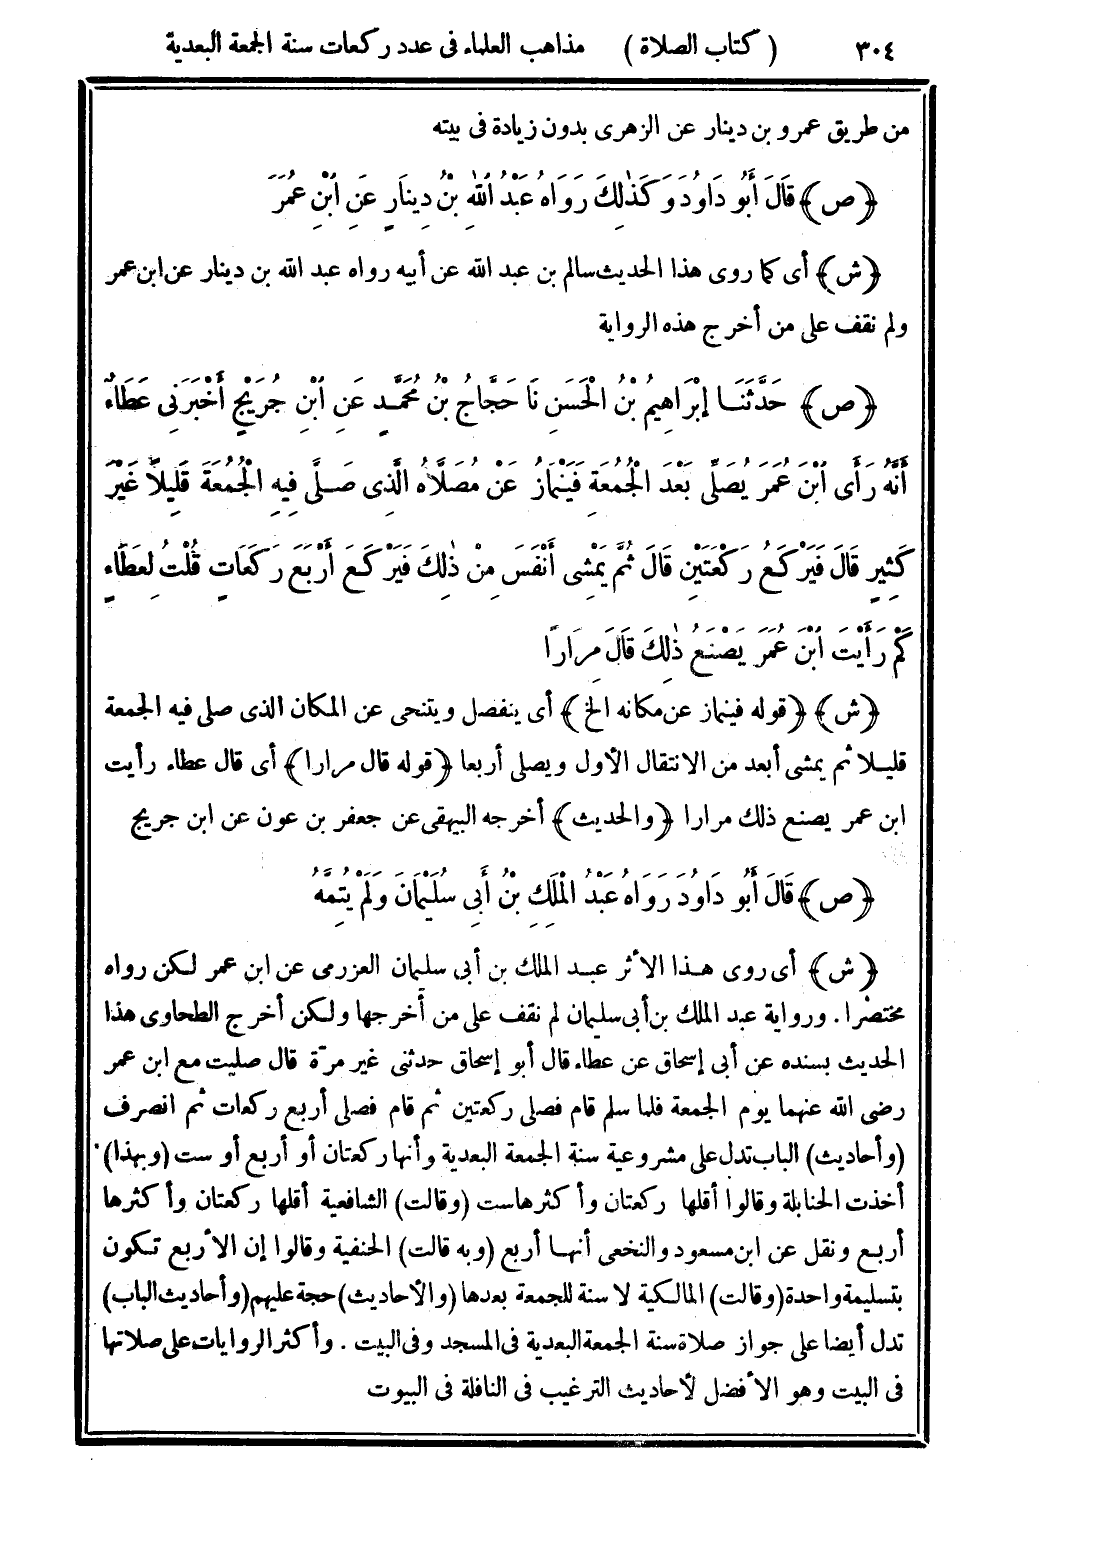 ٣٠٤ ( كتاب الصلاة ) مذاهب العلماء فى عدد ركعات سنة الجمعة البعدية
من طريق عمرو بن دينار عن الزهرى بدون زيادة فى بيته
﴿ص﴾ قَالَ أَبُو دَاوُدَ وَكَذٰلِكَ رَوَاهُ عَبْدُ اللهِ بْنُ دِينَارٍ عَنِ ابْنِ عُمَرَ
﴿ش﴾ أى كما روى هذا الحديث سالم بن عبد الله عن أبيه رواه عبد الله بن دينار عن ابن عمر
ولم نقف على من أخرج هذه الرواية
﴿ص﴾ حَدَّثَنَا إِبْرَاهِيمُ بْنُ الْحَسَنِ نَا حَجَّاجُ بْنُ مُحَمَّدٍ عَنِ ابْنِ جُرَيْجٍ أَخْبَرَنِى عَطَاءٌ
أَنَّهُ رَأَى ابْنَ عُمَرَ يُصَلِّى بَعْدَ الْجُمُعَةِ فَيَنْمَازُ عَنْ مُصَلَّاهُ الَّذِى صَلَّى فِيهِ الْجُمُعَةَ قَلِيلًا غَيْرَ
كَثِيرٍ قَالَ فَيَرْكَعُ رَكْعَتَيْنِ قَالَ ثُمَّ يَمْشِى أَنْفَسَ مِنْ ذٰلِكَ فَيَرْكَعُ أَرْبَعَ رَكَعَاتٍ قُلْتُ لِعَطَاءٍ
كَمْ رَأَيْتَ ابْنَ عُمَرَ يَصْنَعُ ذٰلِكَ قَالَ مِرَارًا
﴿ش﴾ ﴿قوله فينماز عن مكانه الخ﴾ أى ينفصل ويتنحى عن المكان الذى صلى فيه الجمعة
قليلا ثم يمشى أبعد من الانتقال الأول ويصلى أربعا ﴿قوله قال مرارا﴾ أى قال عطاء رأيت
ابن عمر يصنع ذلك مرارا ﴿والحديث﴾ أخرجه البيهقى عن جعفر بن عون عن ابن جريج
﴿ص﴾ قَالَ أَبُو دَاوُدَ رَوَاهُ عَبْدُ الْمَلِكِ بْنُ أَبِى سُلَيْمَانَ وَلَمْ يُتِمَّهُ
﴿ش﴾ أى روى هذا الأثر عبد الملك بن أبى سليمان العزرمى عن ابن عمر لكن رواه
مختصرا . ورواية عبد الملك بن أبى سليمان لم نقف على من أخرجها ولكن أخرج الطحاوى هذا
الحديث بسنده عن أبى إسحاق عن عطاء قال أبو إسحاق حدثنى غير مرّة قال صليت مع ابن عمر
رضى الله عنهما يوم الجمعة فلما سلم قام فصلى ركعتين ثم قام فصلى أربع ركعات ثم انصرف
(وأحاديث) الباب تدل على مشروعية سنة الجمعة البعدية وأنها ركعتان أو أربع أو ست (وبهذا)
أخذت الحنابلة وقالوا أقلها ركعتان وأكثرها ست (وقالت) الشافعية أقلها ركعتان وأكثرها
أربع ونقل عن ابن مسعود والنخعى أنها أربع (وبه قالت) الحنفية وقالوا إن الأربع تكون
بتسليمة واحدة (وقالت) المالكية لا سنة للجمعة بعدها (والأحاديث) حجة عليهم (وأحاديث الباب)
تدل أيضا على جواز صلاة سنة الجمعة البعدية فى المسجد وفى البيت . وأكثر الروايات على صلاتها
فى البيت وهو الأفضل لأحاديث الترغيب فى النافلة فى البيوت